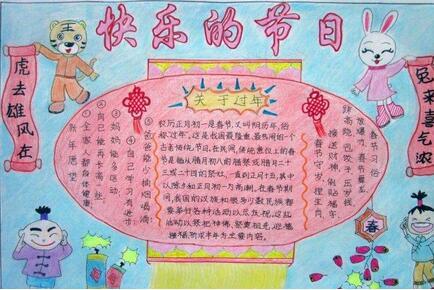 快乐的节日
虎去雄风在
兔来喜气浓
关于过年
农历正月初一是春节,又叫阴历年,俗
称“过年”。这是我国最隆重、最热闹的一个
古老传统节日。在民间,传统意义上的春
节是指从腊月初八的腊祭或腊月二十
三或二十四的祭灶,一直到正月十五,其中
以除夕和正月初一为高潮。在春节期
间,我国的汉族和很多少数民族都
要举行各种活动以示庆祝。这些
活动以祭祀神佛、祭奠祖先、迎禧
接福、祈求丰年为主要内容。
新年愿望
①全家人都身体健康。
②自己能再长高一些。
③妈妈能多运动。
④自己学习有进步
⑤爸爸能少抽烟喝酒
春节习俗
放爆竹、春节蒸
接财神、剃贴福字、
春节守岁、捏生肖、
春
王